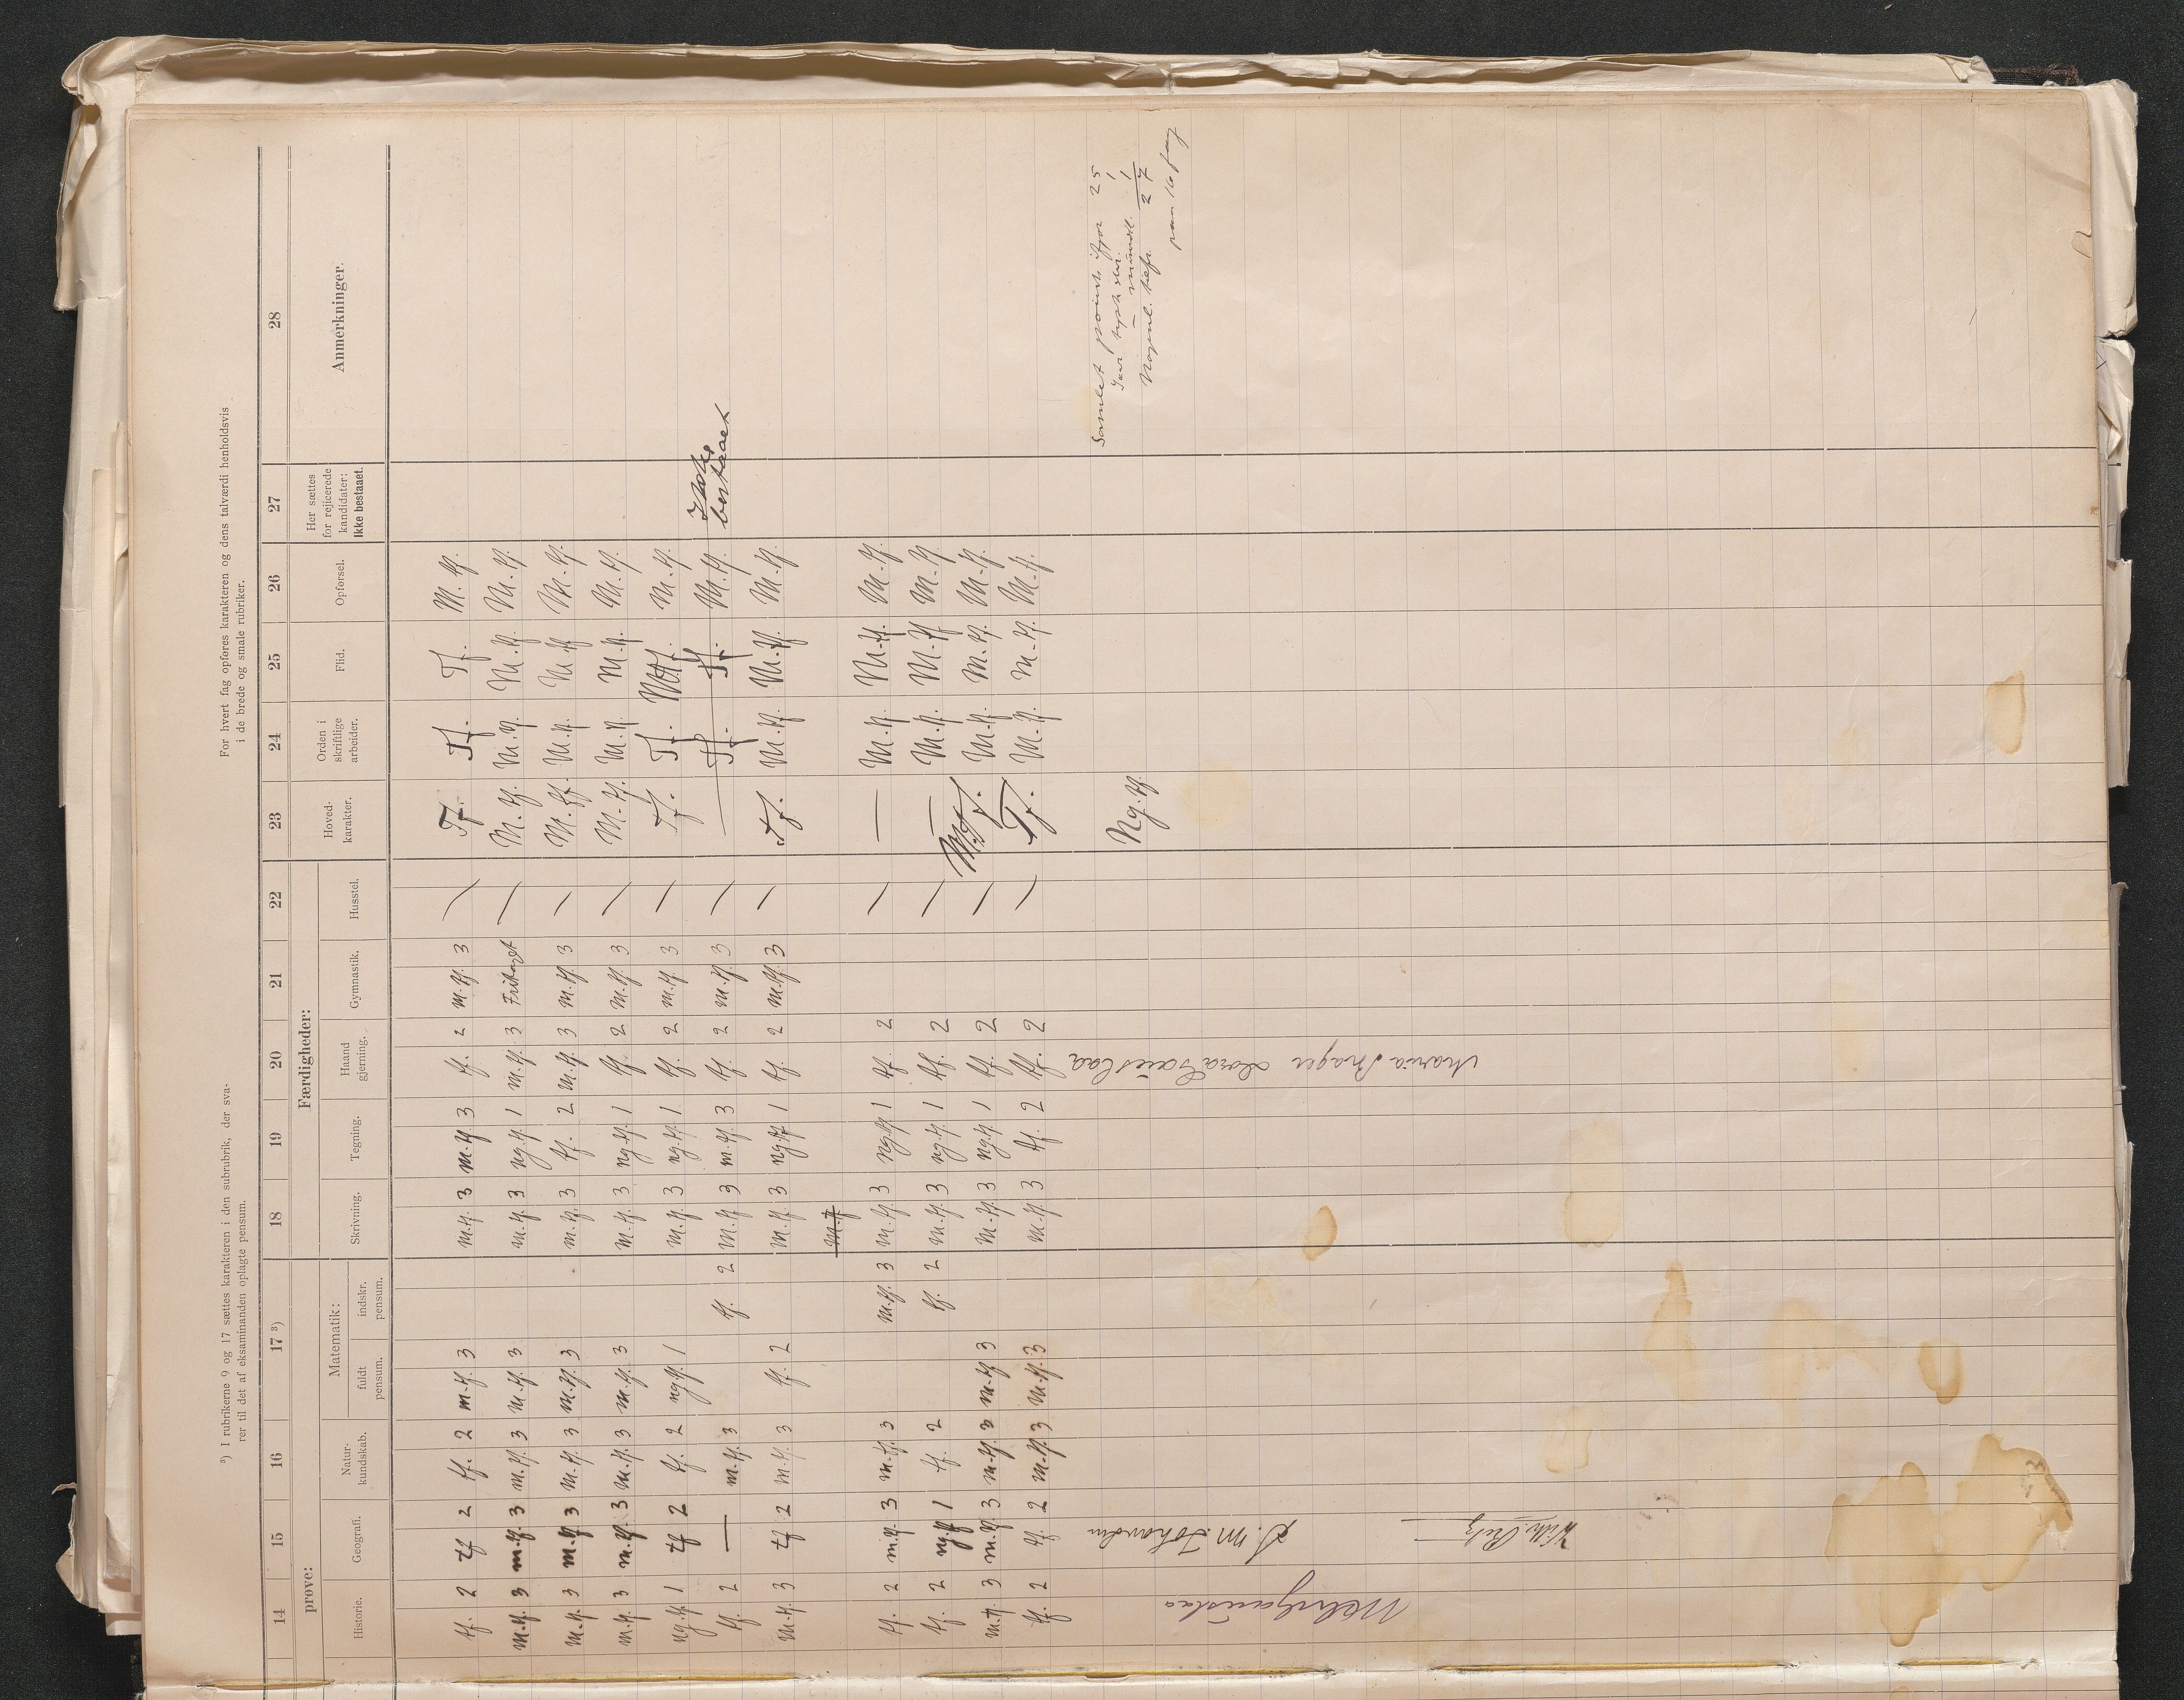 3) I rubrikerne 9 og 17 sættes karakteren i den subrubrik, der sva-
rer til det af eksaminanden oplagte pensum.
For hvert fag opføres karakteren og dens talværdi henholdsvis
i de brede og smale rubriker.
14 15 16 17 3) 18 19 20 21 22 23 24 25 26 27 28
prøve: Færdigheder:
Historie. Geografi. Natur-kundskab. Matematik: fuldt pensum. indskr. pensum. Skrivning. Tegning. Haand gjerning. Gymnastik. Husstel. Hoved-karakter. Orden i skriftlige arbeider. Flid. Opførsel. Her sættes for rejicerede kandidater: Ikke bestaaet. Anmerkninger.
tf. 2 tf 2 tf. 2 m.tf. 3 m.tf. 3 m.tf 3 tf. 2 m.tf. 3 — Tf. Tf. Tf. M.tf.
m.tf. 3 m.tf. 3 m.tf. 3 m.tf. 3 m.tf. 3 ng.tf. 1 m.tf. 3 Fritaget — M.tf. M.tf. M.tf. M.tf.
m.tf. 3 m.tf 3 m.tf. 3 m.tf. 3 m.tf. 3 tf. 2 m.tf. 3 m.tf. 3 — M.tf. M.tf. M.tf M.tf.
m.tf. 3 m.tf. 3 m.tf. 3 m.tf. 3 m.tf. 3 ng.tf. 1 tf. 2 m.tf. 3 — M.tf. M.tf M.tf. M.tf.
ng.tf. 1 tf 2 tf. 2 ng.tf. 1 m.tf. 3 ng.tf. 1 tf. 2 m.tf. 3 — Tf. Tf. M.tf.
tf. 2 — m.tf. 3 tf. 2 m.tf 3 m.tf. 3 tf. 2 m.tf. 3 — — Tf. Tf. M.tf. Ikke bestaaet
m.tf. 3 tf 2 m.tf. 3 tf. 2 m.tf. 3 ng.tf 1 tf. 2 m.tf. 3 — Tf. M.tf. M.tf. M.tf.
m.tf
tf. 2 m.tf. 3 m.tf. 3 m.tf. 3 m.tf. 3 ng.tf 1 tf. 2 — — M.tf. M.tf. M.tf.
tf. 2 ng.tf 1 tf. 2 tf. 2 m.tf. 3 ng.tf. 1 tf. 2 — — M.tf. M.tf M.tf
m.tf. 3 m.tf. 3 m.tf. 3 m.tf 3 m.tf. 3 ng.tf 1 tf. 2 — M.tf. M.tf. M.tf. M.tf.
tf. 2 tf. 2 m.tf. 3 m.tf. 3 m.tf. 3 tf. 2 tf. 2 — Tf. M.tf. M.tf. M.tf.
Ng.tf.
Samlet points ifjor 25
1
mundtl. 1
27
16 fag
Maria Brager